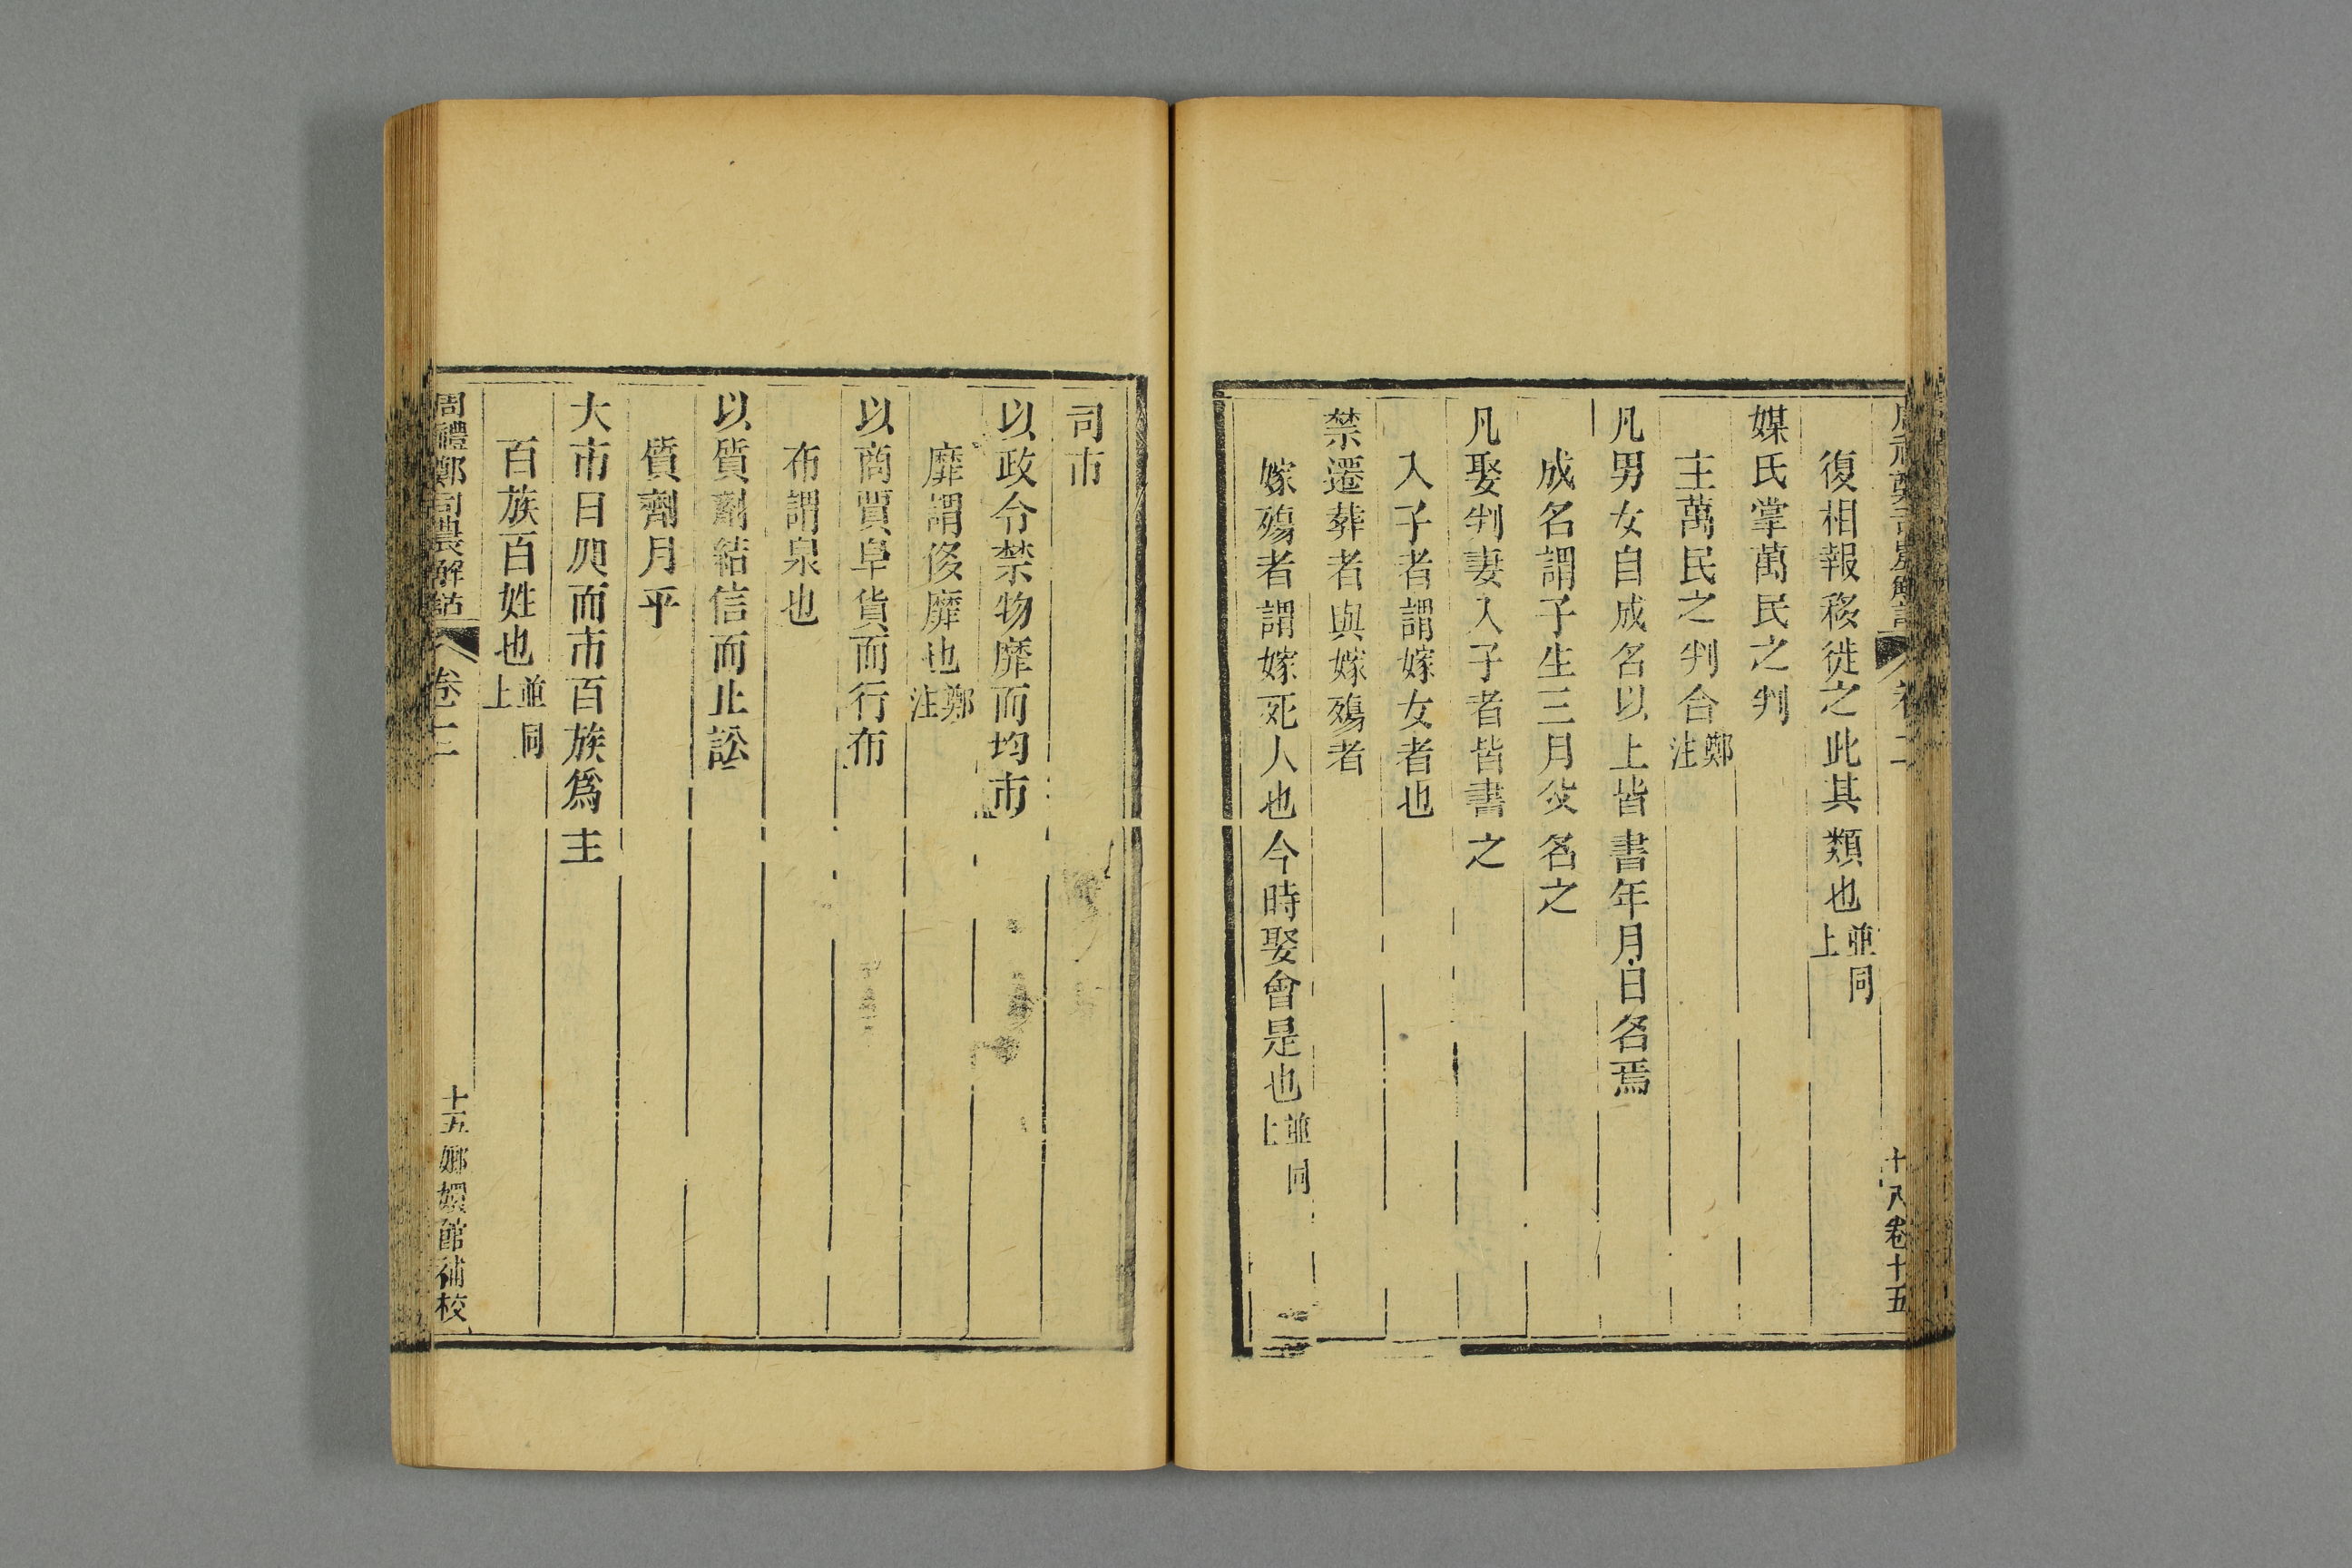 復相報移徙之此其類也並同上
媒氏掌萬民之判
主萬民之判合鄭注
凡男女自成名以上皆書年月日名焉
成名謂子生三月父名之
凡娶判妻入子者皆書之
入子者謂嫁女者也
禁遷葬者與嫁殤者
嫁殤者謂嫁死人也今時娶會是也並同上
十八卷十五
司市
以政令禁物靡而均市
靡謂侈靡也鄭注
以商賈阜貨而行布
布謂泉也
以質劑結信而止訟
質劑月平
大市日昃而市百族爲主
百族百姓也並同上
周禮鄭司農解詁 卷二
十五 嫏嬛館補校